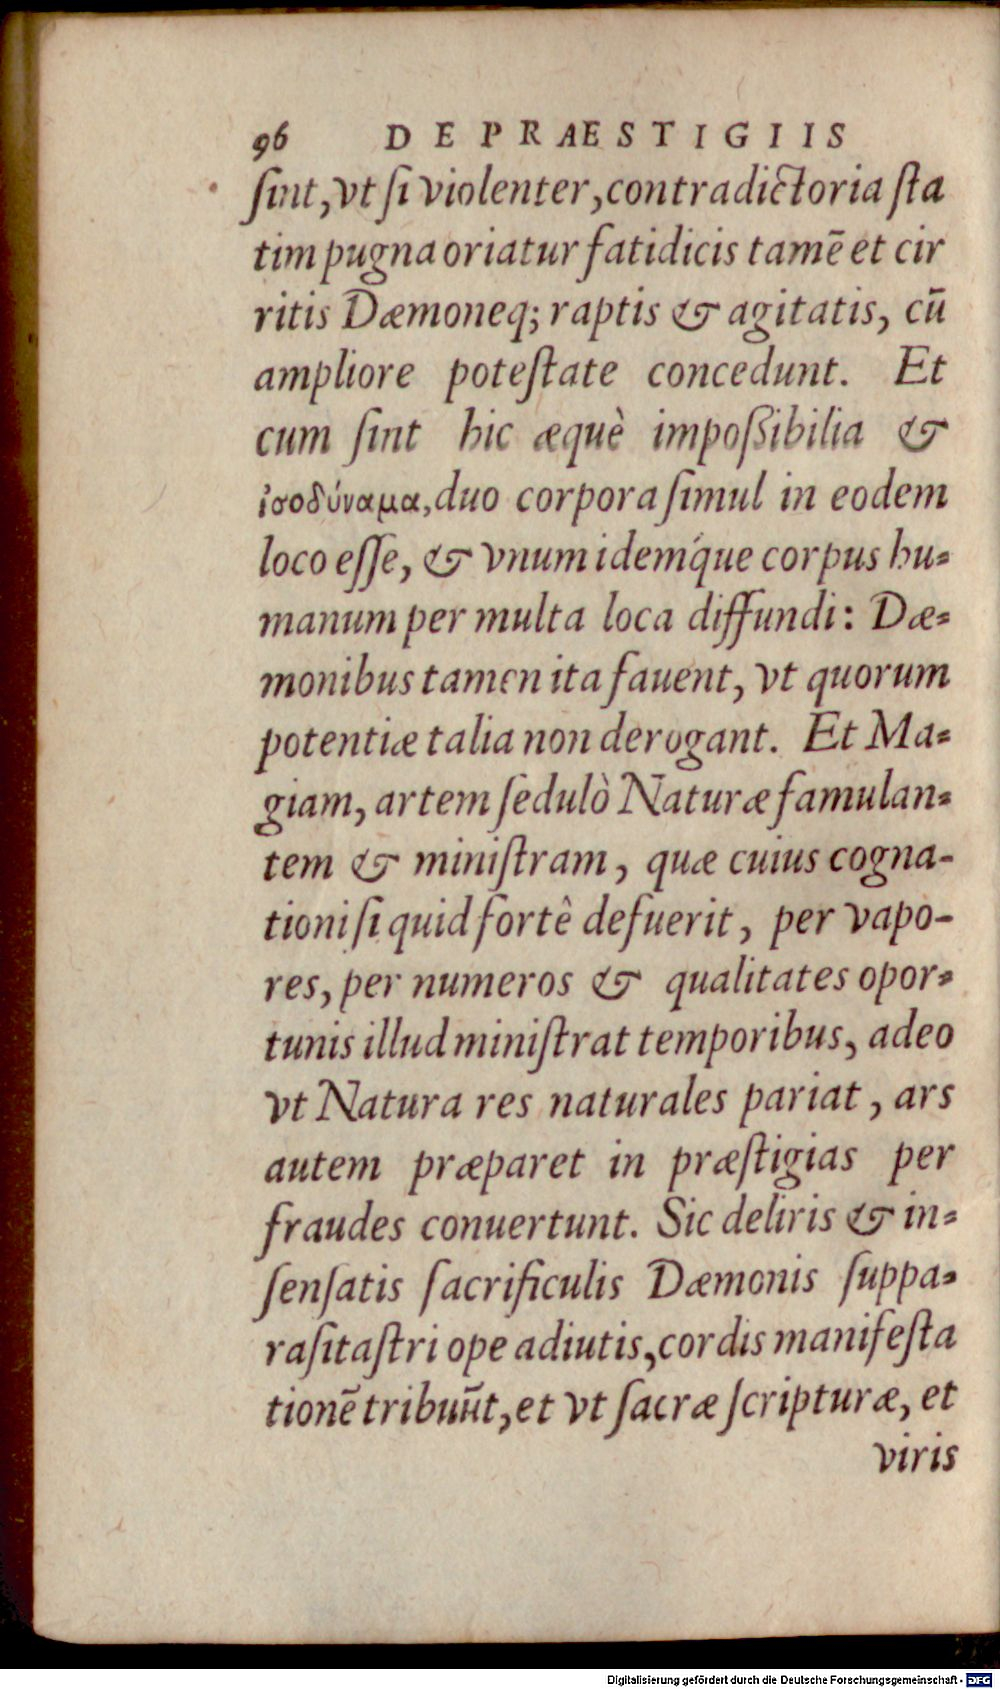 96 DE PRAESTIGIIS
ſint, vt ſi violenter, contradictoria ſta
tim pugna oriatur fatidicis tamē et cir
ritis Dæmoneq; raptis & agitatis, cū
ampliore poteſtate concedunt. Et
cum ſint hic æquè impoßibilia &
ἰσοδύναμα, duo corpora ſimul in eodem
loco eſſe, & vnum idemq́ue corpus hu-
manum per multa loca diffundi: Dæ-
monibus tamen ita fauent, vt quorum
potentiæ talia non derogant. Et Ma-
giam, artem ſedulò Naturæ famulan-
tem & miniſtram, quæ cuius cogna-
tioni ſi quid fortê defuerit, per vapo-
res, per numeros & qualitates opor-
tunis illud miniſtrat temporibus, adeo
vt Natura res naturales pariat, ars
autem præparet in præſtigias per
fraudes conuertunt. Sic deliris & in-
ſenſatis ſacrificulis Dæmonis ſuppa-
raſitaſtri ope adiutis, cordis manifeſta
tionē tribuūt, et vt ſacræ ſcripturæ, et
viris
Digitalisierung gefördert durch die Deutsche Forschungsgemeinschaft - DFG